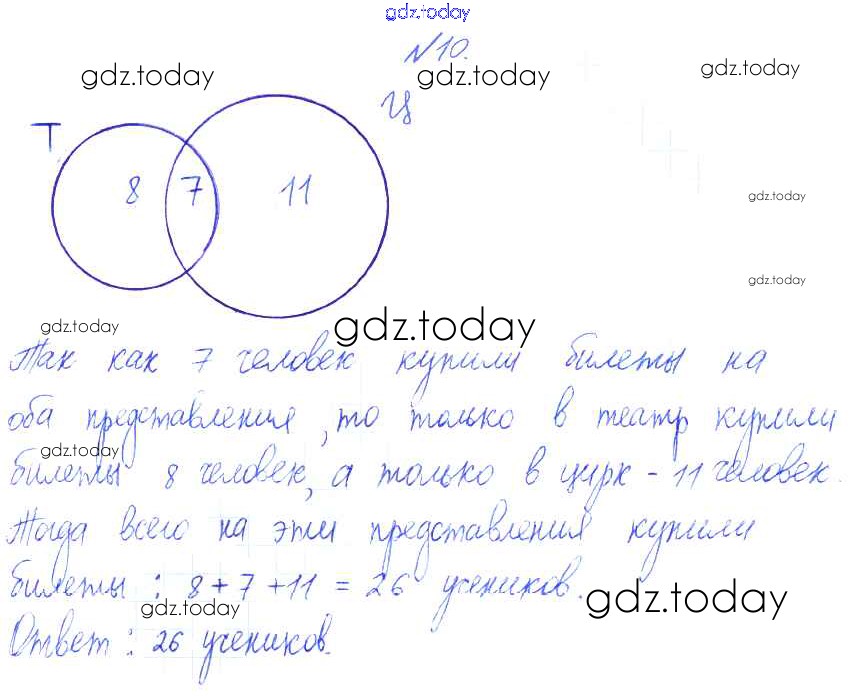 gdz.today
№10.
gdz.today gdz.today gdz.today
Т Ц
8 7 11
gdz.today
gdz.today
gdz.today gdz.today
Так как 7 человек купили билеты на
оба представления, то только в театр купили
gdz.today
билеты 8 человек, а только в цирк - 11 человек.
Тогда всего на эти представления купили
билеты : 8 + 7 + 11 = 26 учеников.
gdz.today gdz.today
Ответ : 26 учеников.